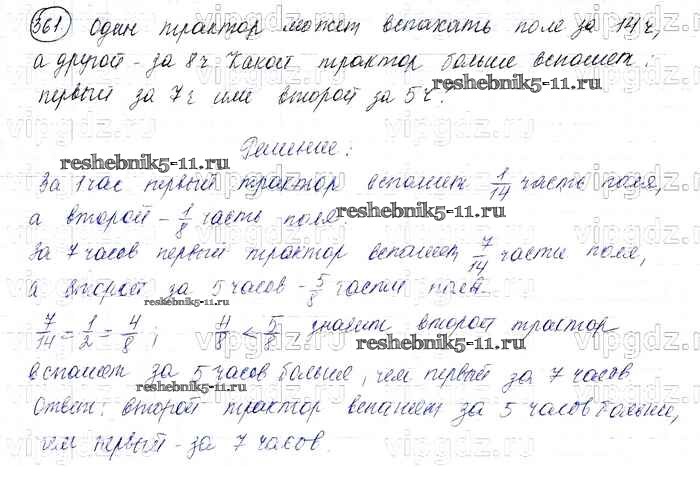 361 Один трактор может вспахать поле за 14 ч,
а другой - за 8 ч. Какой трактор больше вспашет:
первый за 7 ч или второй за 5 ч?
reshebnik5-11.ru
Решение:
reshebnik5-11.ru
За 1 час первый трактор вспашет 1/14 часть поля,
а второй - 1/8 часть поля.
reshebnik5-11.ru
За 7 часов первый трактор вспашет 7/14 части поля,
а второй за 5 часов - 5/8 части поля.
reshebnik5-11.ru
7/14 = 1/2 = 4/8 ; 4/8 < 5/8 значит второй трактор
reshebnik5-11.ru
вспашет за 5 часов больше, чем первый за 7 часов
reshebnik5-11.ru
Ответ: второй трактор вспашет за 5 часов больше,
чем первый - за 7 часов.